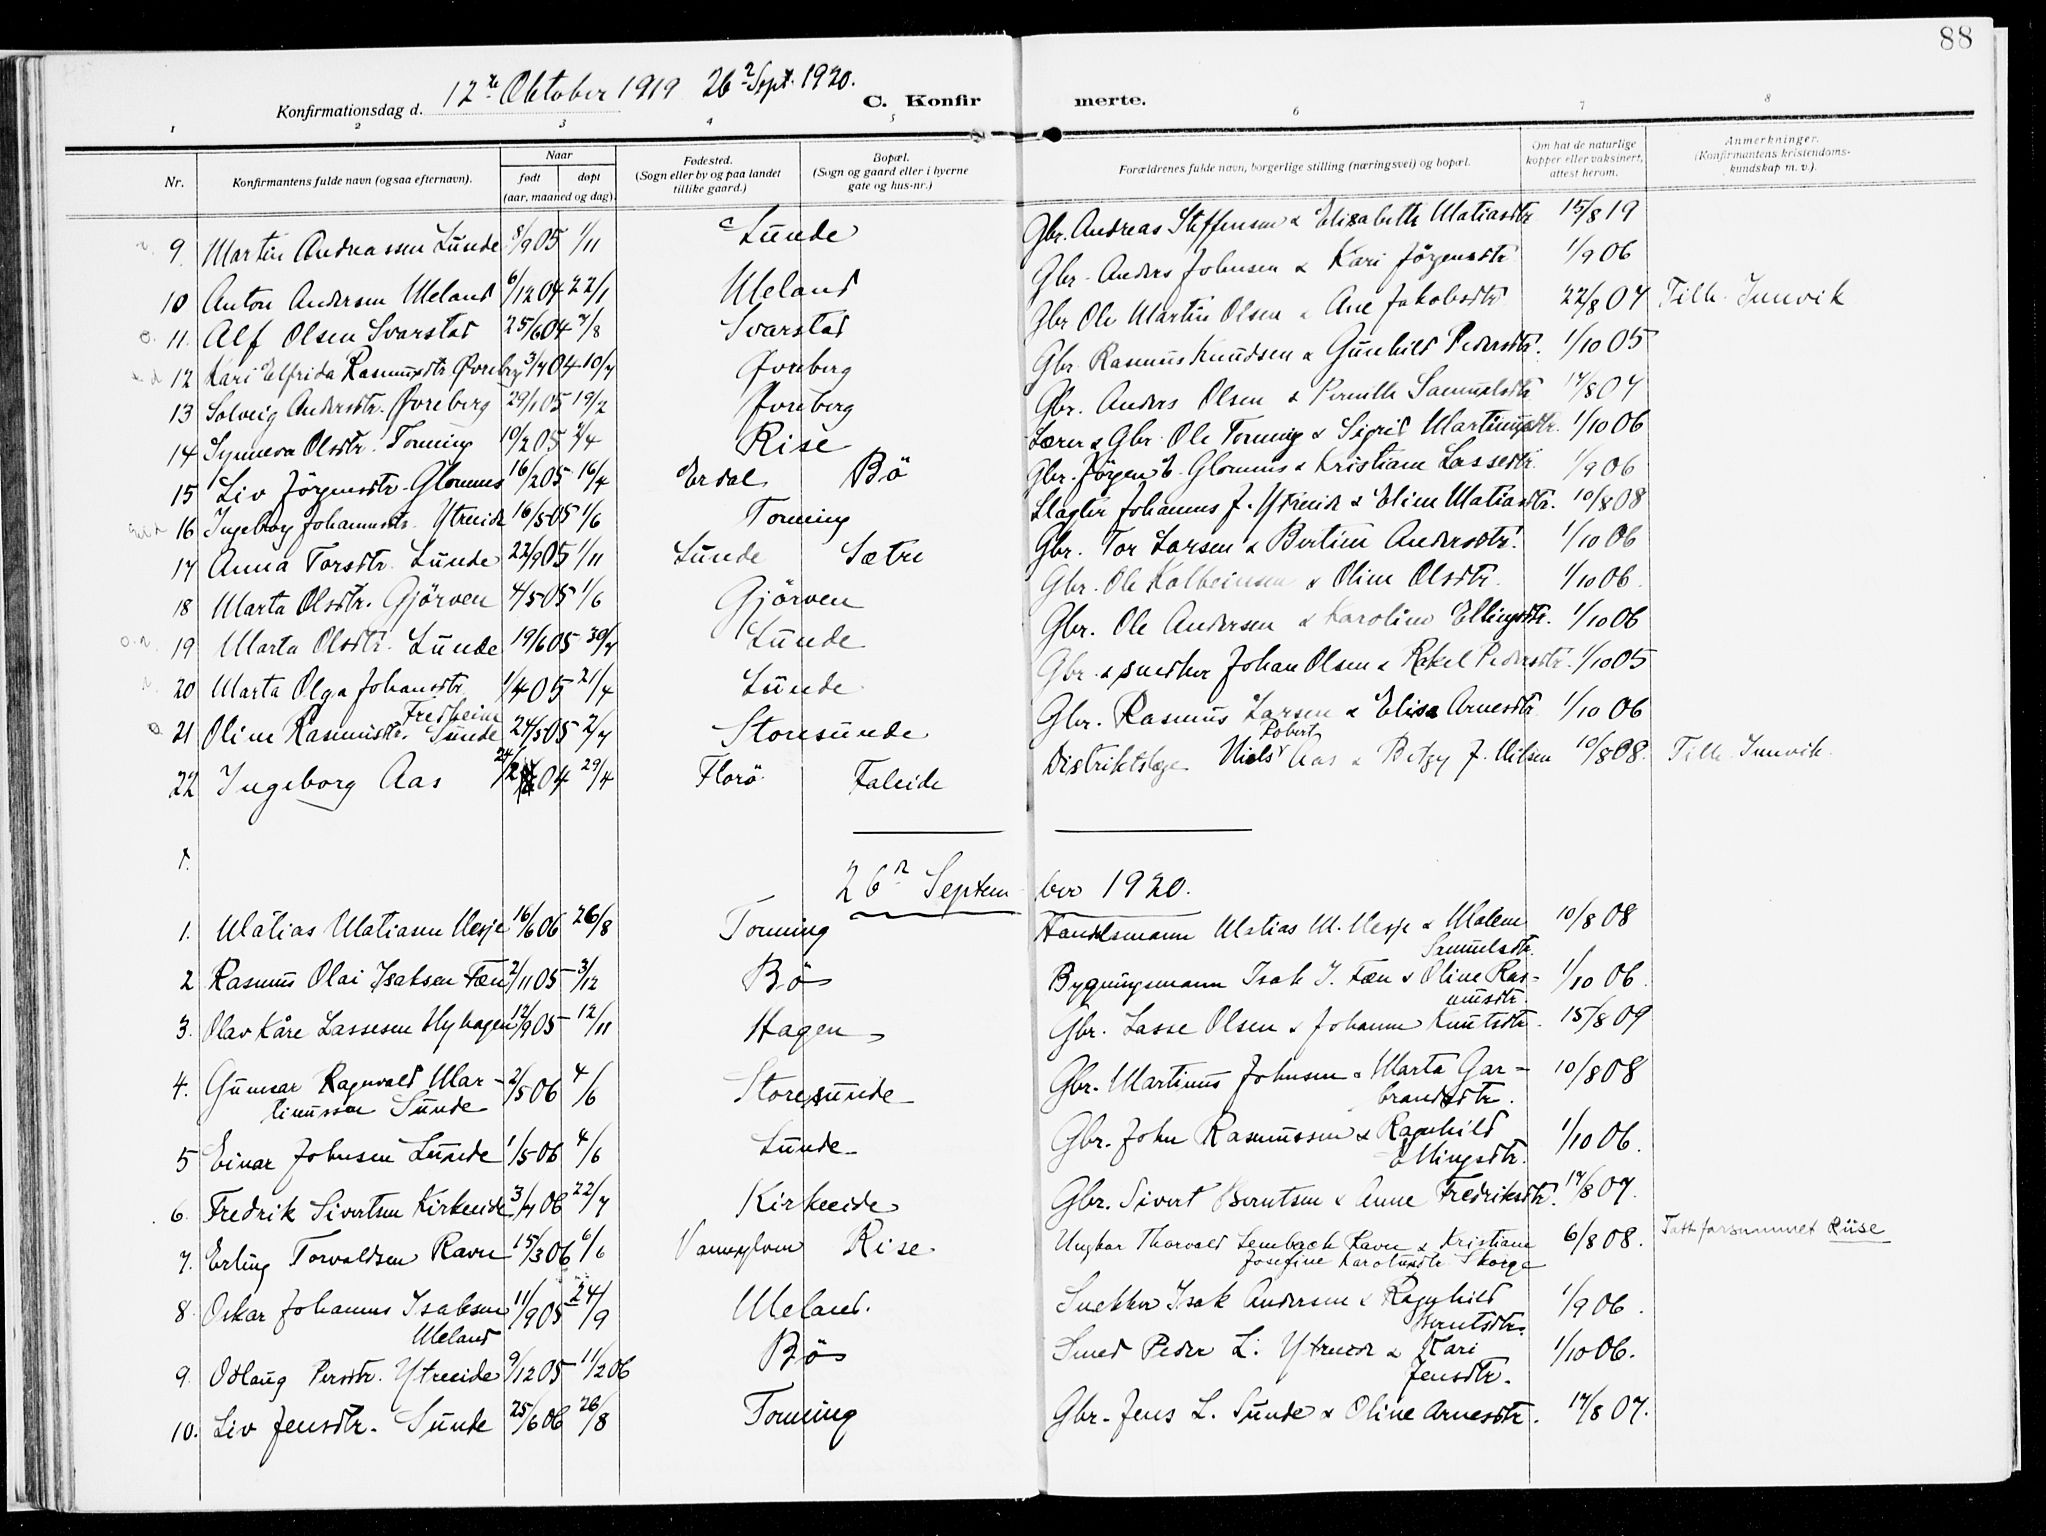 88
Konfirmationsdag d. 12te Oktober 1919 26de Sept. 1920. C. Konfirmerte.
1 2 3 4 5 6 7 8
Nr. Konfirmantens fulde navn (ogsaa efternavn). Naar født døpt (aar, maaned og dag). Fødested. (Sogn eller by og paa landet tillike gaard.) Bopæl. (Sogn og gaard eller i byerne gate og hus-nr.) Forældrenes fulde navn, borgerlige stilling (næringsvei) og bopæl. Om hat de naturlige kopper eller vaksinert, attest herom. Anmerkninger. (Konfirmantens kristendomskundskap m. v.).
9. Martin Andreassen Lunde 8/9 05 1/11 Lunde Gbr. Andreas Steffensen & Elisabeth Matiasdtr 15/8 19
10 Anton Andersen Meland 6/12 04 22/1 Meland Gbr. Anders Johnsen & Kari Jörgensdtr 1/9 06
11. Alf Olsen Svarstad 25/6 04 7/8 Svarstad Gbr Ole Martin Olsen & Ane Jakobsdtr 22/8 07 Tilh. Innvik
12 Kari Elfrida Rasmusdtr Øvreberg 3/7 04 10/7 Øvreberg Gbr. Rasmus Knudsen & Gunhild Pedersdtr. 1/10 05
13 Solveig Andersdtr. Øvreberg 29/1 05 19/2 Øvreberg Gbr. Anders Olsen & Pernille Samuelsdtr 17/8 07
14 Synneva Olsdtr. Tonning 10/2 05 2/4 Rise Lærer & Gbr. Ole Tonning & Sigrid Martinusdtr. 1/10 06
15 Liv Jörgensdtr. Glomnes 16/2 05 16/4 Erdal Bö Gbr. Jörgen E. Glomnes & Kristiane Lassesdtr. 1/9 06
16 Ingeborg Johannesdtr. Ytreide 16/5 05 1/6 Tonning Slagter Johannes J. Ytreide & Eline Matiasdtr. 10/8 08
17 Anna Torsdtr. Lunde 22/9 05 1/11 Lunde Sætre Gbr. Tor Larsen & Bertine Andersdtr. 1/10 06
18 Marta Olsdtr. Gjörven 4/5 05 1/6 Gjörven Gbr. Ole Kolbeinsen & Oline Olsdtr. 1/10 06.
19 Marta Olsdtr. Lunde 19/6 05 30/7 Lunde Gbr. Ole Andersen & Karoline Ellingsdtr. 1/10 06
20 Marta Olga Johansdtr. 1/4 05 21/4 Lunde Gbr. & snedker Johan Olsen & Rakel Pedersdtr. 1/10 05
Fredheim
21 Oline Rasmusdtr. Sunde 24/5 05 2/7 Storesunde Gbr. Rasmus Larsen & Elisa Arnesdtr 1/10 06
22 Ingeborg Aas 24/2 04 29/4 Florö Faleide Distriktslæge Niels Robert Aas & Betzy J. Nilsen 10/8 08. Tilh. Innvik.
26de September 1920.
1. Matias Matiasen Mesje 16/6 06 26/8 Tonning Handelsmann Matias M. Mesje & Malene Samuelsdtr. 10/8 08
2 Rasmus Olai Isaksen Fæn 2/11 05 3/12 Bö Bygningsmann Isak J. Fæn & Oline Rasmusdtr. 1/10 06.
3. Olav Kåre Lassesen Myhagen 12/9 05 12/11 Hagen Gbr. Lasse Olsen & Johanne Knutsdtr. 15/8 09
4. Gunnar Ragnvald Martinussen Sunde 2/5 06 4/6 Storesunde Gbr. Martinus Johnsen & Marta Garbrandsdtr. 10/8 08
5 Einar Johnsen Lunde 1/5 06 4/6 Lunde Gbr. John Rasmussen & Ragnhild Ellingsdtr. 1/10 06.
6. Fredrik Sivertsen Kirkeeide 3/7 06 22/7 Kirkeeide Gbr. Sivert Berntsen & Anne Fredriksdtr. 17/8 07.
7. Erling Torvaldsen Ravn 15/3 06 6/6 Vannylven Rise Ungkar Thorvald Lembach Ravn & Kristiane Josefine Karolusdtr Skorge 6/8 08. Tatt forsömmet Riise
8. Oskar Johannes Isaksen Meland 11/9 05 24/9 Meland. Snekker Isak Andersen & Ragnhild Berntsdtr. 1/9 06.
9. Odlaug Persdtr. Ytreeide 9/12 05 11/2 06 Bö Smed Peder L. Ytreeide & Kari Jensdtr. 1/10 06.
10. Liv Jensdtr. Sunde 25/6 06 26/8 Tonning Gbr. Jens L. Sunde & Oline Arnesdtr. 17/8 07.